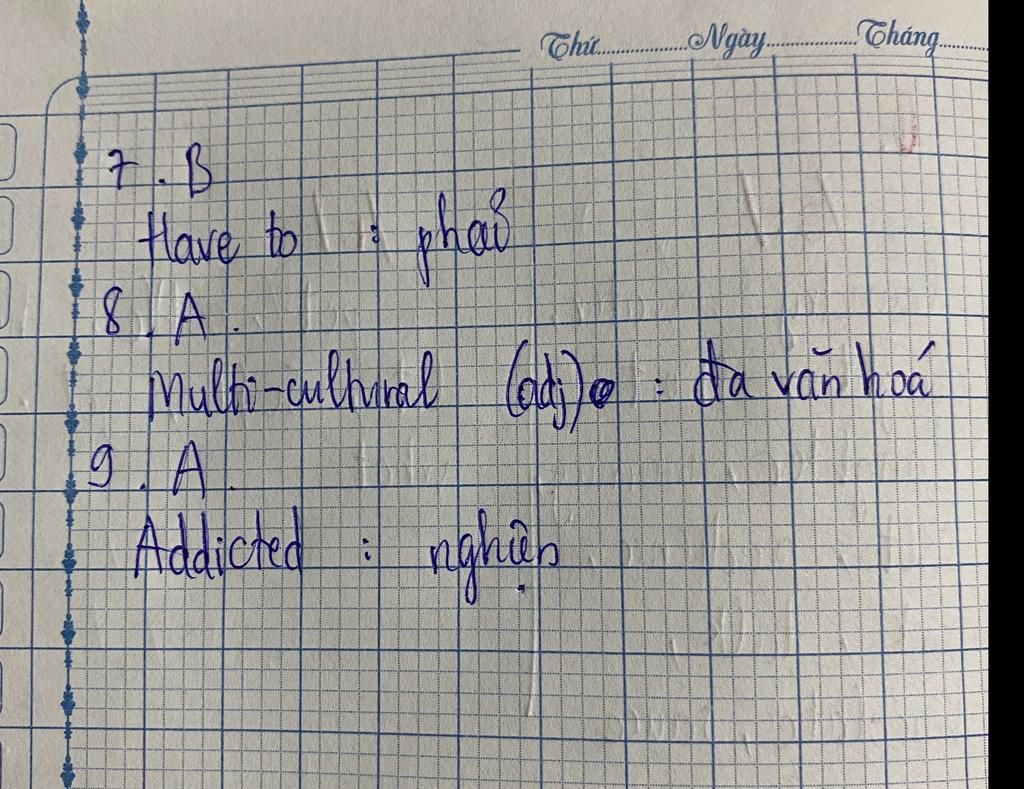 Thứ...............Ngày...............Tháng.........
7. B
Have to : phải
8. A.
Multi-cultural (adj) : đa văn hoá
9. A.
Addicted : nghiện